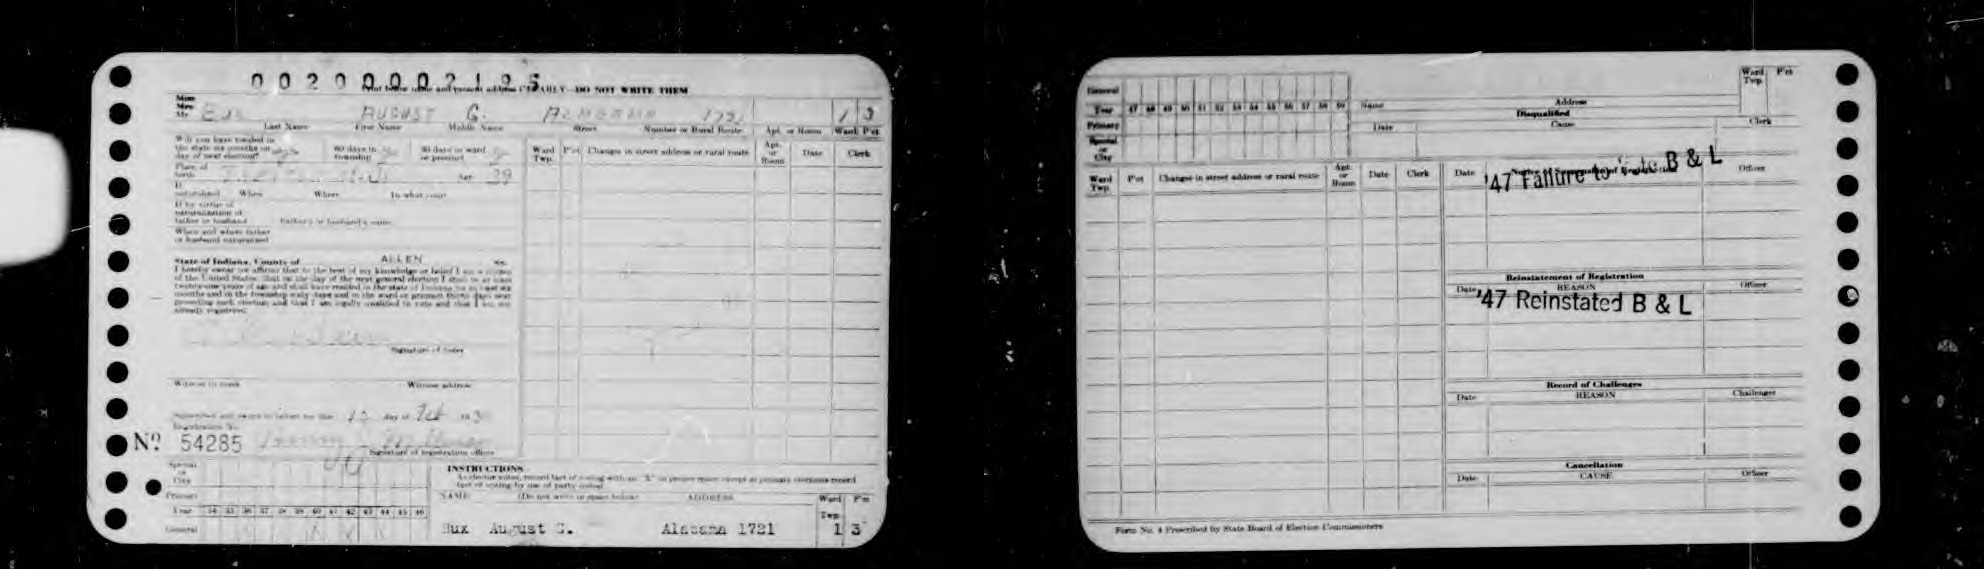 00200002195
Print below name and present address CLEARLY—DO NOT WRITE THEM
Miss
Mrs.
Mr. AUGUST C. 1721 1 3
Last Name First Name Middle Name Street Number or Rural Route Apt. or Room Ward P'ct
Will you have resided in
the state six months on
day of next election? 60 days in
township 30 days in ward
or precinct
Ward
Twp. P'ct Changes in street address or rural route Apt.
or
Room Date Clerk
Place of
birth Age 39
If
naturalized When Where In what court
If by virtue of
naturalization of
father or husband Father's or husband's name
When and where father
or husband naturalized
State of Indiana, County of ALLEN ss:
I hereby swear (or affirm) that to the best of my knowledge or belief I am a citizen
of the United States; that on the day of the next general election I shall be at least
twenty-one years of age and shall have resided in the state of Indiana for at least six
months and in the township sixty days and in the ward or precinct thirty days next
preceding such election and that I am legally qualified to vote and that I am not
already registered.
Signature of Voter
Witness to mark Witness address
Subscribed and sworn to before me this 12 day of Feb 193
Registration No.
No. 54285
Signature of registration officer
Special
or
City
Primary
Year 34 35 36 37 38 39 40 41 42 43 44 45 46
General
INSTRUCTIONS
As elector votes, record fact of voting with an "X" in proper space except at primary elections record
fact of voting by use of party initial
NAME (Do not write in space below) ADDRESS Ward
Twp. P'ct
Bux August C. Alabama 1721 1 3
General
Year 47 48 49 50 51 52 53 54 55 56 57 58 59
Primary
Special
or
City
Name Address Ward
Twp. P'ct
Disqualified
Date Cause Clerk
Ward
Twp. P'ct Changes in street address or rural route Apt.
or
Room Date Clerk
Date Officer
'47 Failure to Vote B & L
Reinstatement of Registration
Date REASON Officer
'47 Reinstated B & L
Record of Challenges
Date REASON Challenger
Cancellation
Date CAUSE Officer
Form No. 4 Prescribed by State Board of Election Commissioners